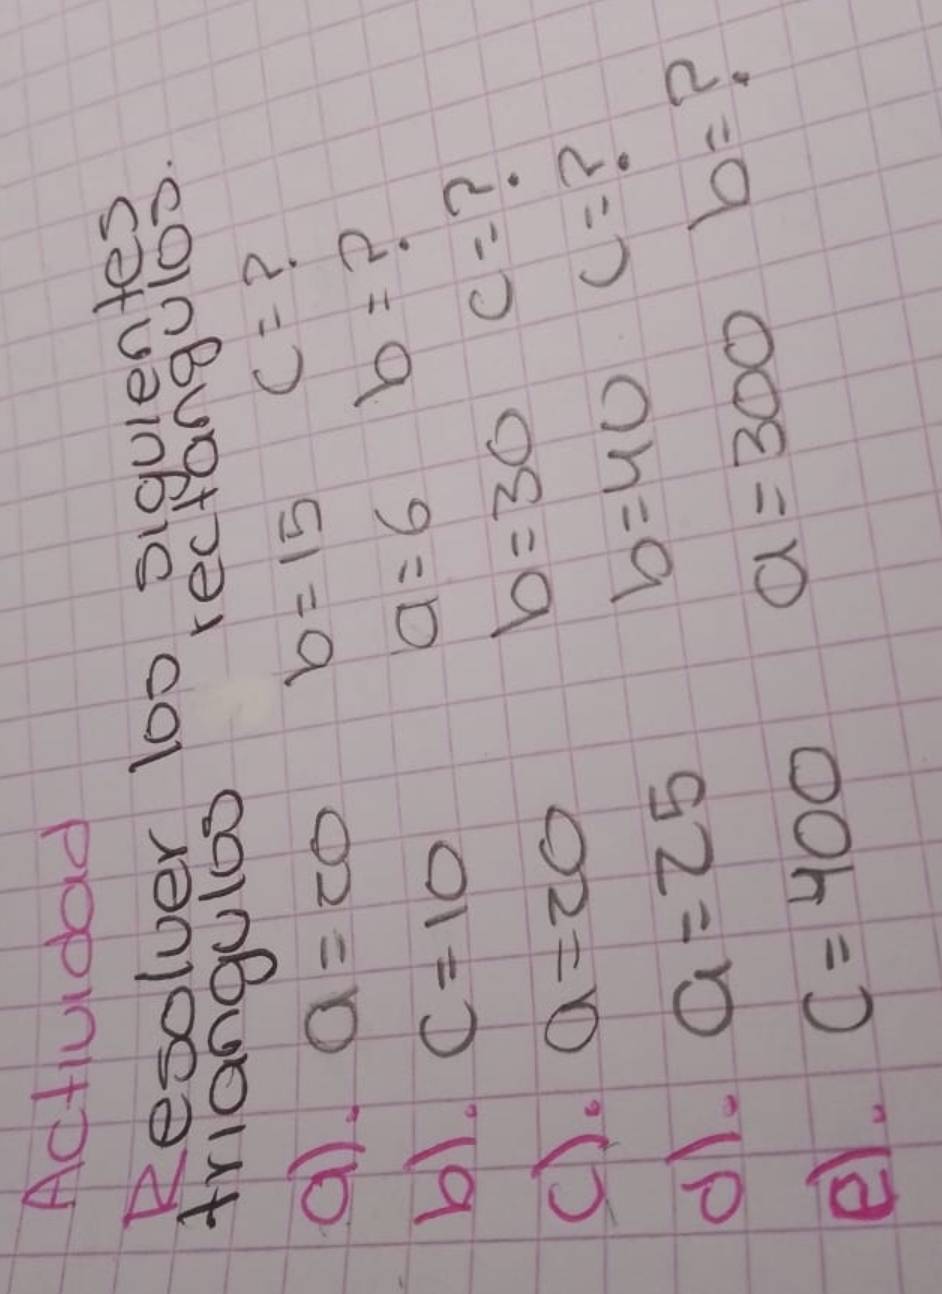 Actividad
Resolver los siguientes
triangulos rectangulos.
a). a = 20 b = 15 c = ?
b). c = 10 a = 6 b = ?
c). a = 20 b = 30 c = ?
d). a = 25 b = 40 c = ?
e). c = 400 a = 300 b = ?